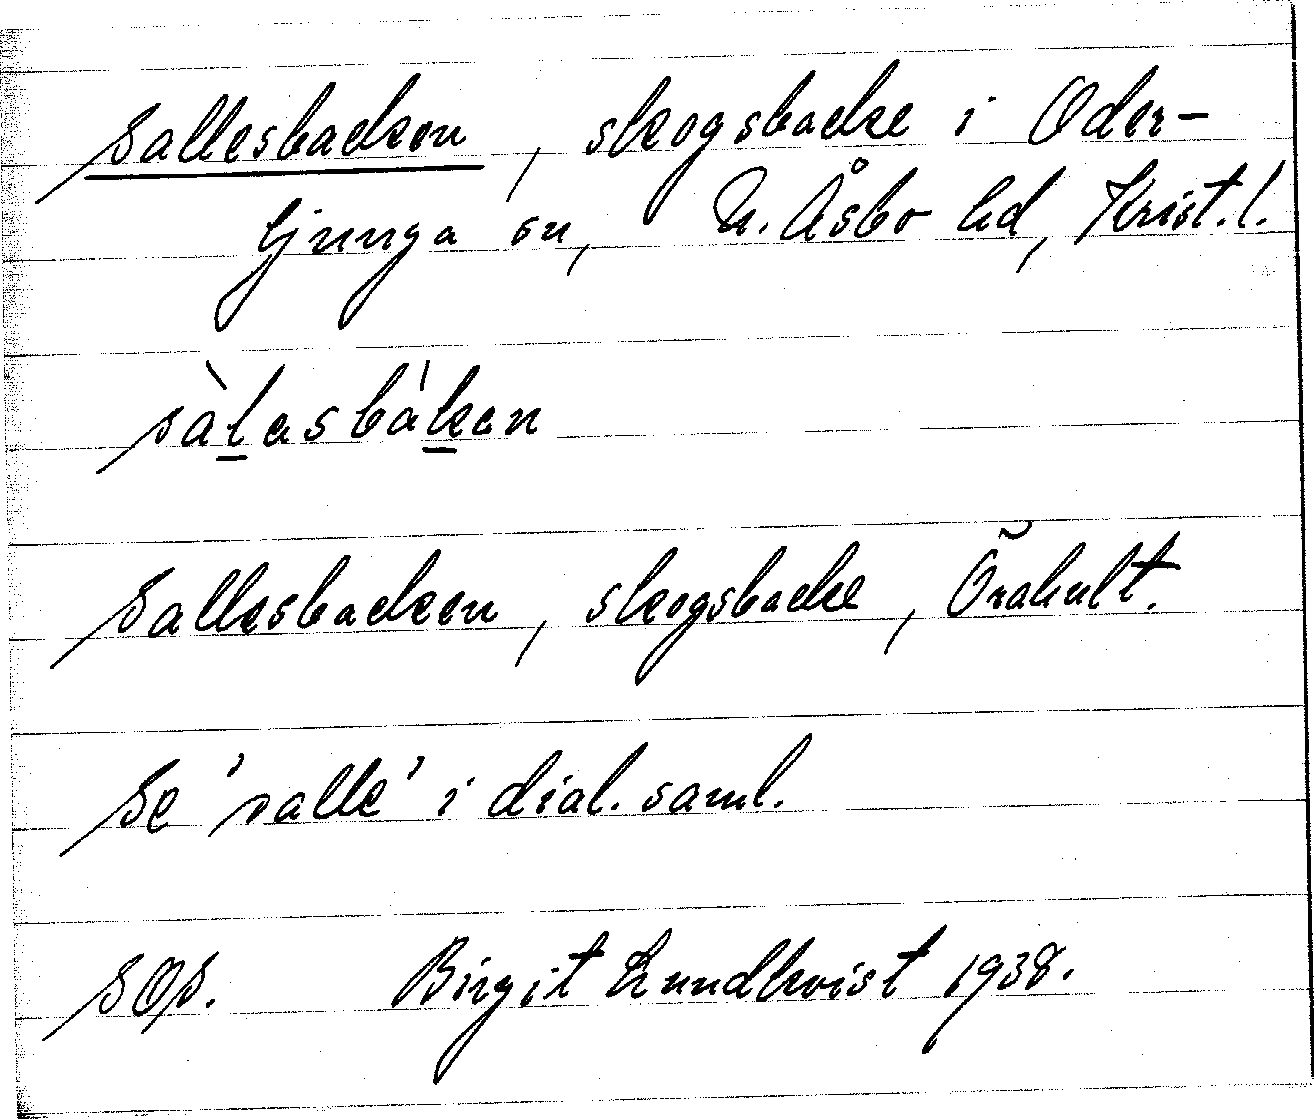 Sallesbacken, skogsbacke i Oder-
ljunga sn, N. Åsbo hd, Krist. l.
sàl̲asbák̲en
Sallesbacken, skogsbacke, Örahult.
Se 'salle' i dial. saml.
SOS. Birgit Lundkvist 1938.